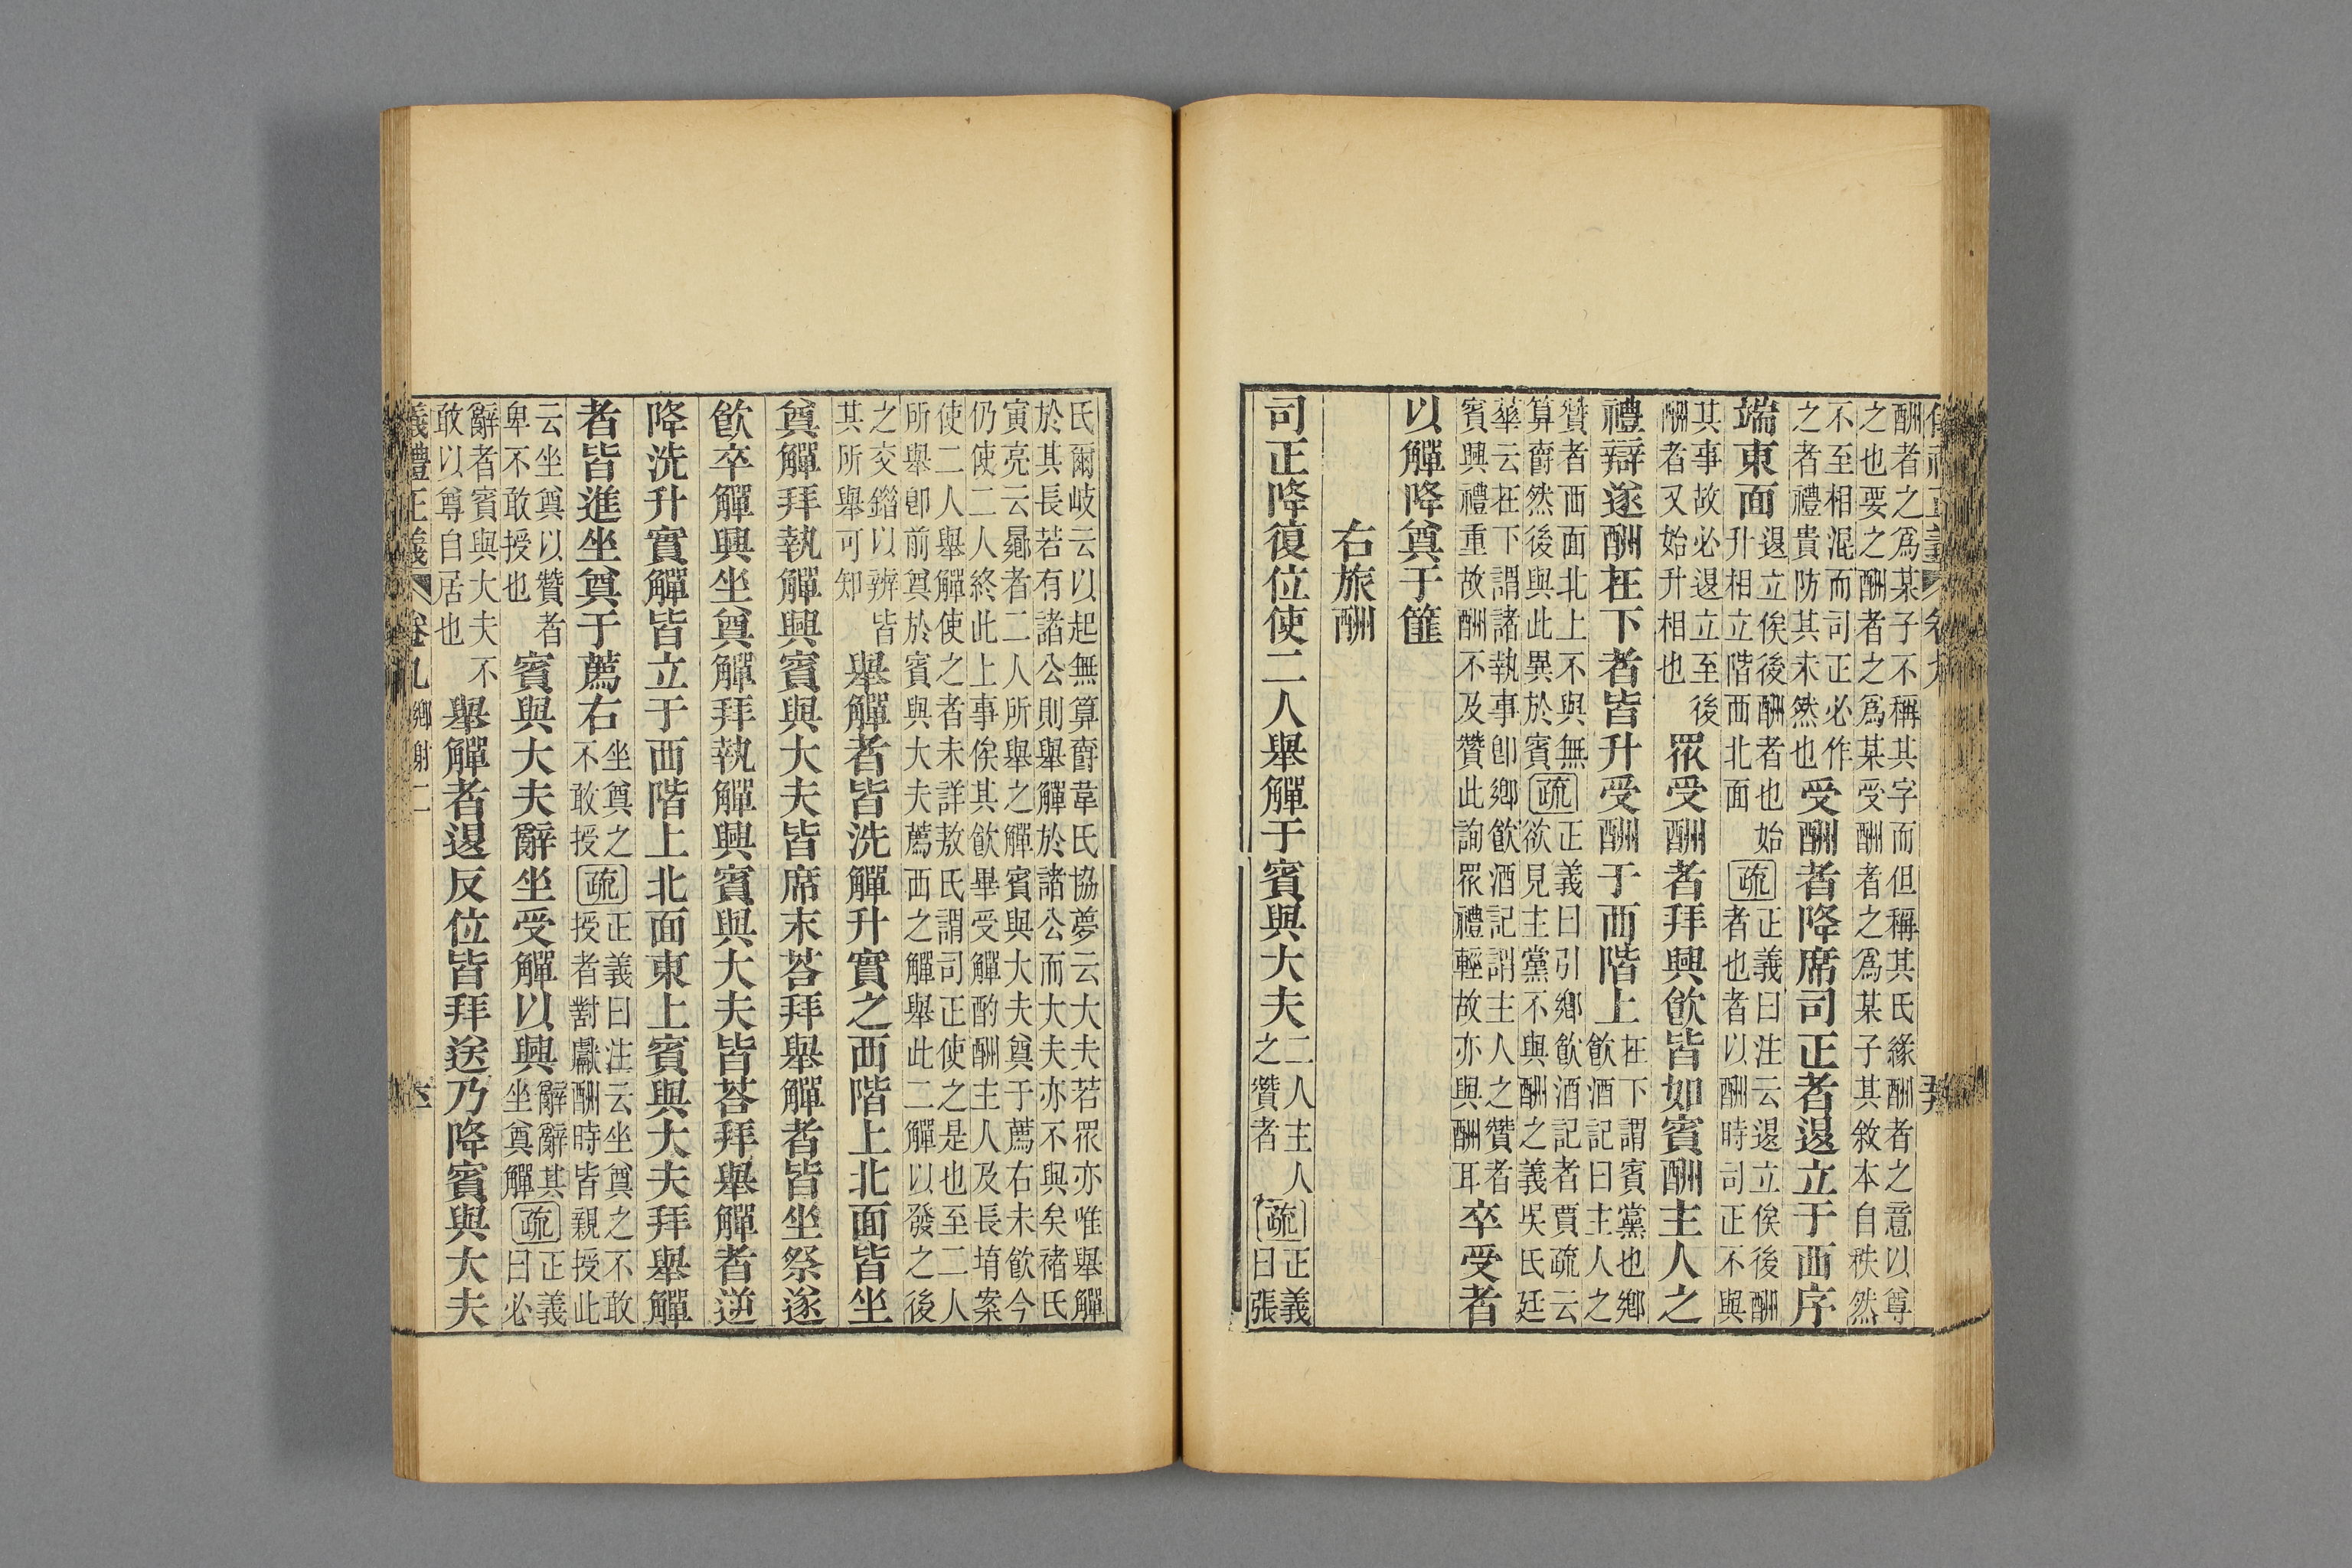 酬者之爲某子不稱其字而但稱其氏緣酬者之意以尊
之也要之酬者之爲某受酬者之爲某子其敘本自秩然
不至相混而司正必作
之者禮貴防其未然也
受酬者降席司正者退立于西序
端東面
退立俟後酬者也始
升相立階西北面
疏
正義曰注云退立俟後酬
者也者以酬時司正不與
其事故必退立至後
酬者又始升相也
眾受酬者拜興飮皆如賓酬主人之
禮辯遂酬在下者皆升受酬于西階上
在下謂賓黨也鄉
飮酒記曰主人之
贊者西面北上不與無
算爵然後與此異於賓
疏
正義曰引鄉飮酒記者賈疏云
欲見主黨不與酬之義吳氏廷
華云在下謂諸執事卽鄉飮酒記謂主人之贊者
賓興禮重故酬不及贊此詢眾禮輕故亦與酬耳
卒受者
以觶降奠于篚
右旅酬
司正降復位使二人舉觶于賓與大夫
二人主人
之贊者
疏
正義
曰張
氏爾岐云以起無算爵韋氏協夢云大夫若眾亦唯舉觶
於其長若有諸公則舉觶於諸公而大夫亦不與矣褚氏
寅亮云曏者二人所舉之觶賓與大夫奠于薦右未飮今
仍使二人終此上事俟其飮畢受觶酌酬主人及長堉案
使二人舉觶使之者未詳敖氏謂司正使之是也至二人
所舉卽前奠於賓與大夫薦西之觶舉此二觶以發之後
之交錯以辨皆
其所舉可知
舉觶者皆洗觶升實之西階上北面皆坐
奠觶拜執觶興賓與大夫皆席末荅拜舉觶者皆坐祭遂
飮卒觶興坐奠觶拜執觶興賓與大夫皆荅拜舉觶者逆
降洗升實觶皆立于西階上北面東上賓與大夫拜舉觶
者皆進坐奠于薦右
坐奠之
不敢授
疏
正義曰注云坐奠之不敢
授者對獻酬時皆親授此
云坐奠以贊者
卑不敢授也
賓與大夫辭坐受觶以興
辭辭其
坐奠觶
疏
正義
曰必
辭者賓與大夫不
敢以尊自居也
舉觶者退反位皆拜送乃降賓與大夫
義禮正義 卷九 鄉射二